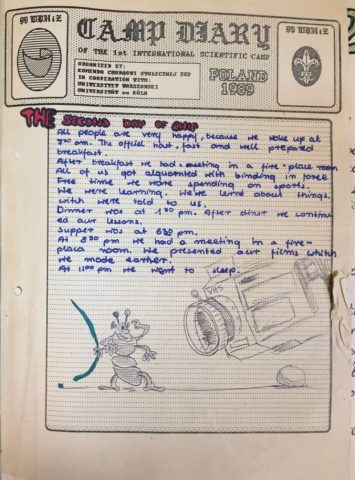 Z.I HKW 66
CAMP DIARY
OF THE 1st INTERNATIONAL SCIENTIFIC CAMP
ORGANIZED BY:
KOMENDA CHORĄGWI STOŁECZNEJ ZHP
IN COOPERATION WITH:
UNIWERSYTET WARSZAWSKI
UNIVERSITÄT zu KÖLN
POLAND
1989
Z.I HKW 66
THE SECOND DAY OF CAMP
All people are very happy, because we woke up at
7:30 am. The official host, fast and well prepared
breakfast.
After breakfast we had a meeting in a fire-place room
All of us got aquainted with binding in force
Free time we were spending on sports.
We were learning. We've lernt about things,
witch were told to us.
Dinner was at 1:30 pm. After diner we continu-
ed our lessons.
Supper was at 6:30 pm.
At 8:30 pm we had a meeting in a fire-
place room. We presented our films whitch
we made earlier.
At 11:00 pm we went to sleep.
VHS